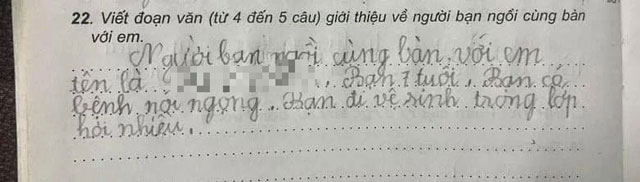 22. Viết đoạn văn (từ 4 đến 5 câu) giới thiệu về người bạn ngồi cùng bàn
với em.
Người bạn ngồi cùng bàn với em
tên là . Bạn 7 tuổi. Bạn có
bệnh nói ngọng. Bạn đi vệ sinh trong lớp
hơi nhiều.